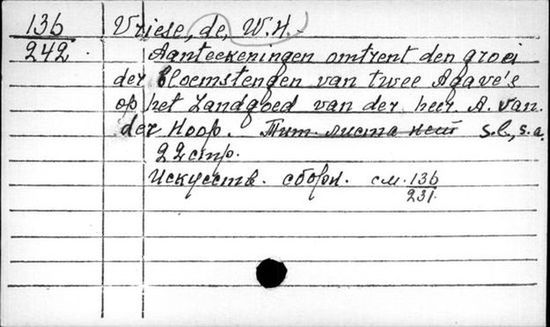 136 Vriese, de, W.H.
242. Aanteekeningen omtrent den groei
der Bloemstengen van twee Agave's
op het Landgoed van der heer A. van
der Hoop. Тит. листа нет s.l., s.a.
22 стр.
Искусств. сборн. см. 136
231.